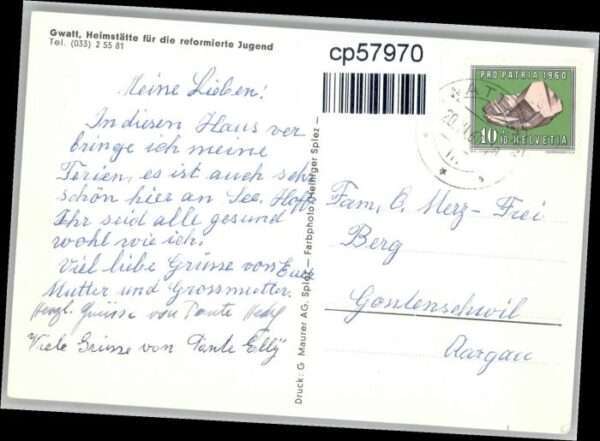 Gwatt, Heimstätte für die reformierte Jugend
Tel. (033) 2 55 81
cp57970
PRO PATRIA 1960
10+10 HELVETIA
Meine Lieben!
In diesen Haus ver
bringe ich meine
Ferien, es ist auch sehr
schön hier an See. Hoffe
Ihr seid alle gesund
wohl wie ich.
Viel liebe Grüsse von Eure
Mutter und Grossmutter.
Herzl. Grüsse von Tante Hedy
Viele Grüsse von Tante Elly
Druck: G Maurer AG, Spiez — Farbphoto Heiniger Spiez
Fam. O. Merz-Frei
Berg
Gontenschwil
Aargau